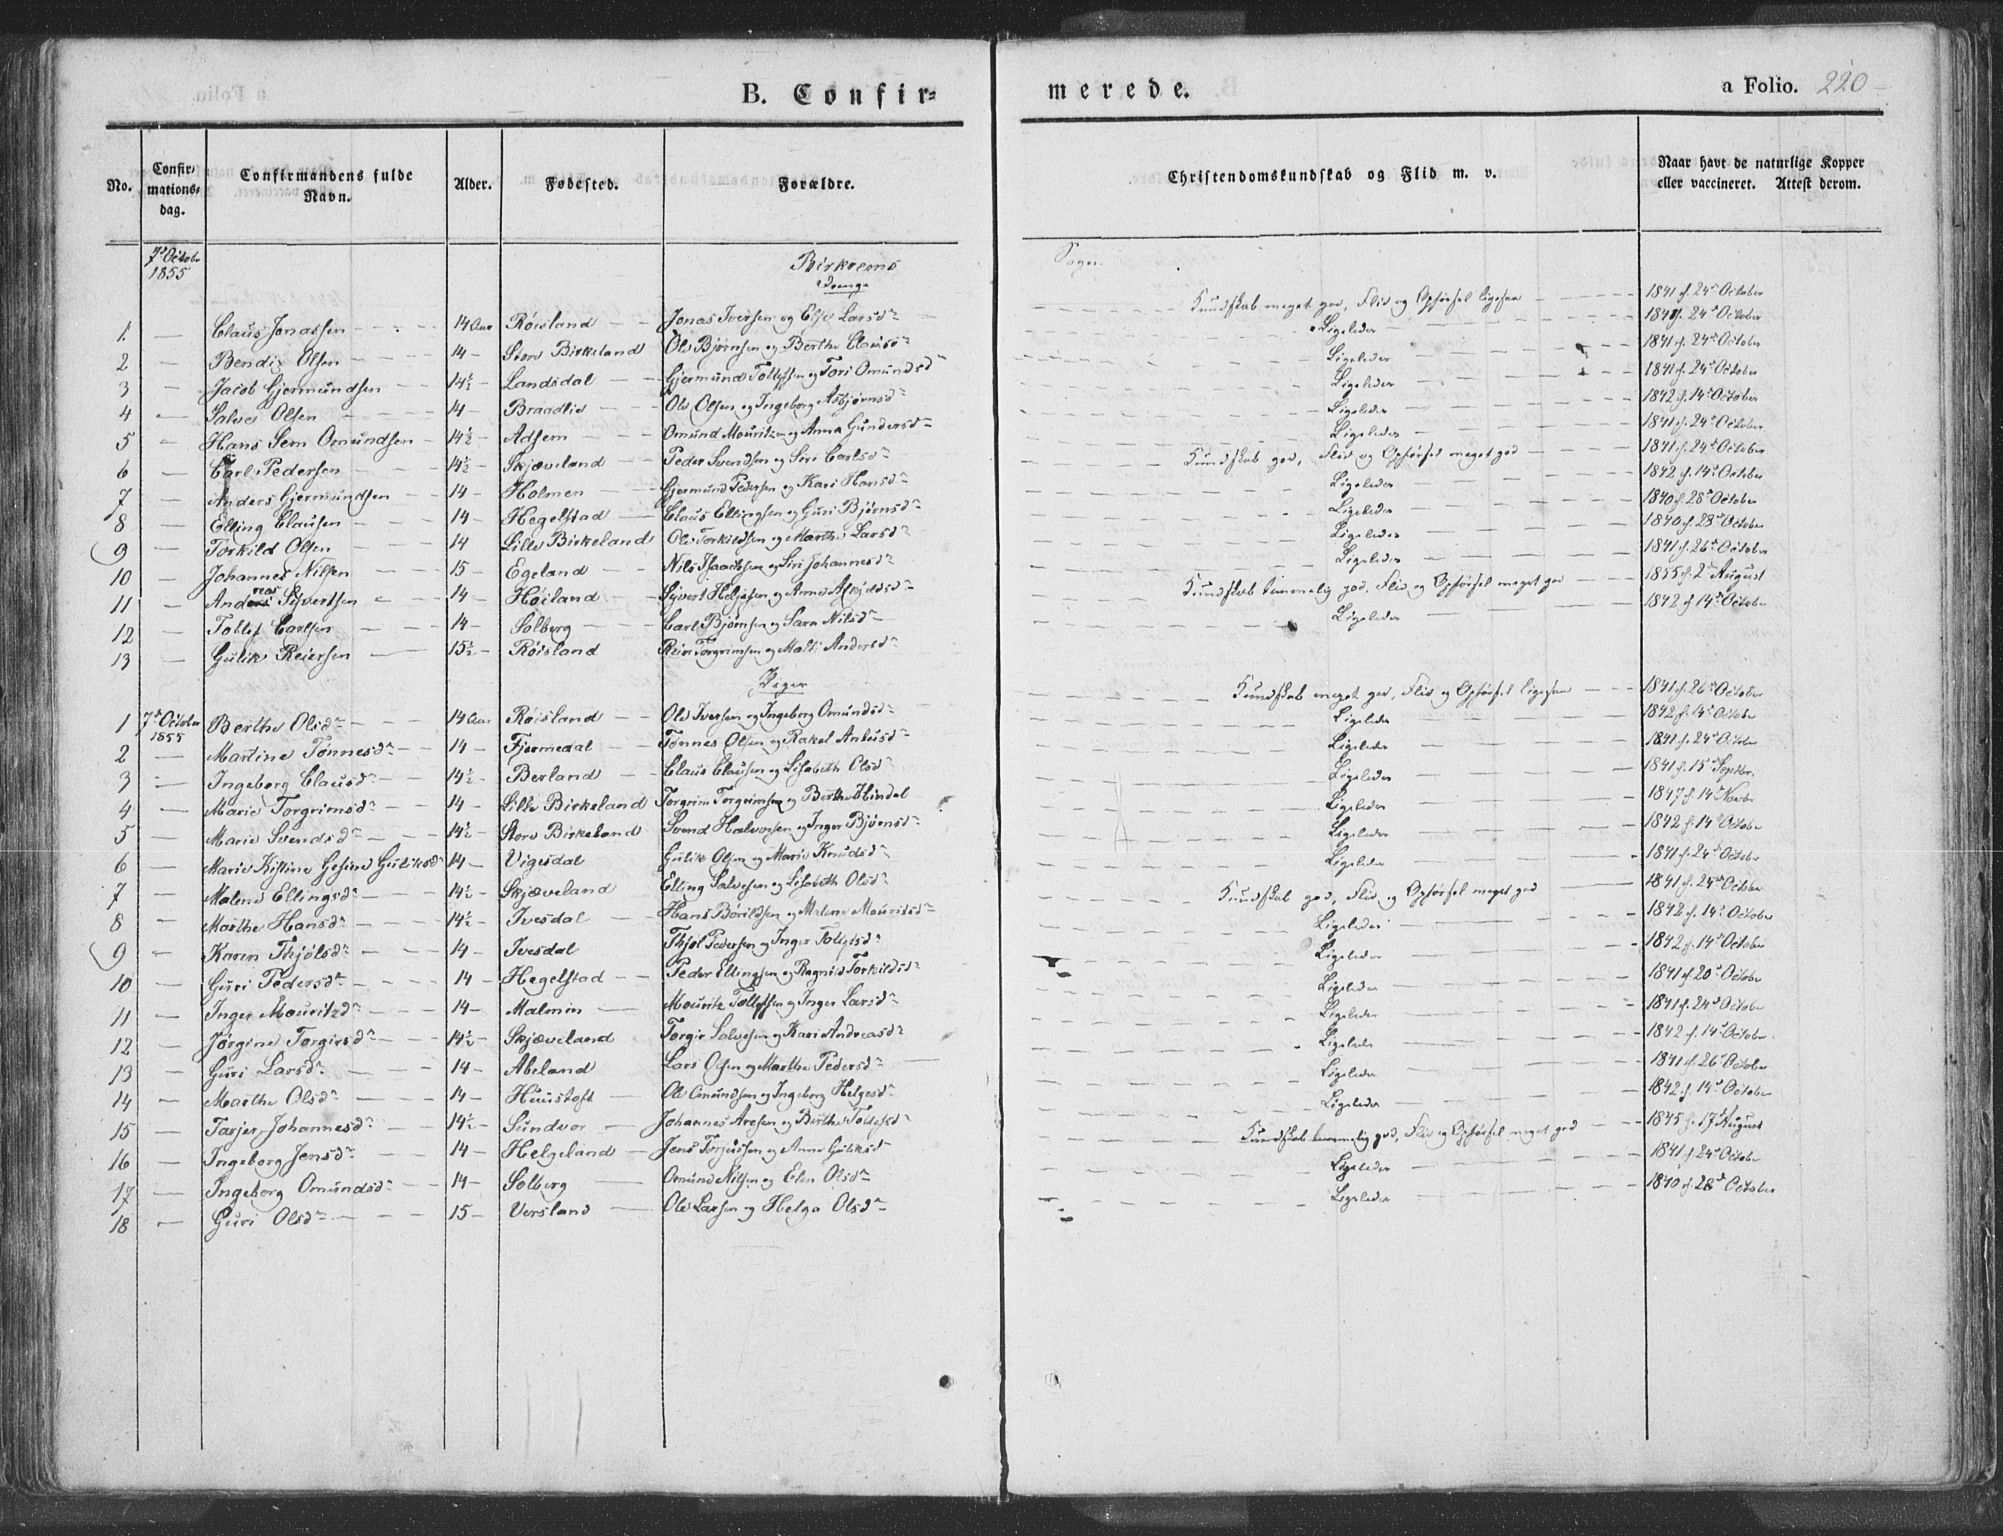 B. Confir=
merede.
a Folio. 220
No.
Confir-
mations-
dag.
Confirmandens fulde
Navn.
Alder.
Fødested.
Forældre.
Christendomskundskab og Flid m. v.
Naar havt de naturlige Kopper
eller vaccineret. Attest derom.
7d October
1855
Birkrems Sogn.
Drenge
1 — Claus Jonassen 14 Aar Røisland Jonas Iversen og Else Larsdr Kundskab meget god, Flid og Opførsel ligesaa 1841 d. 24de October
2 — Bendix Olsen 14 Store Birkeland Ole Bjørnsen og Berthe Clausdr Ligeledes 24de October
3 — Jacob Gjermundsen 14½ Landsdal Gjermund Tollefsen og Tori Omundsd Ligeledes 1841 d. 24de October
4 — Salve Olsen 14 Braadlie Ole Olsen og Ingeborg Asbjørnsd Ligeledes 1841 d. 24de October
5 — Hans Sem Omundsen 14½ Adsem Omund Mouritzen og Anna Gundersdr Ligeledes 1842 d. 14de October
6 — Carl Pedersen 14½ Skjæveland Peder Svendsen og Siri Carlsdr Ligeledes 1841 d. 24de October
7 — Anders Gjermundsen 14 Holmen Gjermund Pedersen og Kari Hansdr Kundskab god, Flid og Opførsel meget god 1841 d. 24de October
8 — Elling Clausen 14 Hegelstad Claus Ellingsen og Guri Bjørnsdr Ligeledes 1842 d. 14de October
9 — Torkild Olsen 14 Lille Birkeland Ole Torkildsen og Marthe Larsdr Ligeledes 1840 d. 28de October
10 — Johannes Nilsen 15 Egeland Nils Isaachsen og Siri Johannesdr Ligeledes 1840 d. 28de October
11 — Andreas Sivertsen 14 Høiland Sivert Helgesen og Anne Ligeledes 1841 d. 26de October
12 — Tollef Carlsen 14 Solberg Carl Bjørnsen og Sara Nilsdr Kundskab temmelig god, Flid og Opførsel meget god 1855 d. 2de August
13 — Gulik Reiersen 15½ Røisland Reier Torgrimsen og Malti Andersdr Ligeledes 1842 d. 14de October
Piger
1 7d October 1855 Berthe Olsdr 14 Aar Røisland Ole Iversen og Ingeborg Omundsdr Kundskab meget god, Flid og Opførsel ligesaa 1841 d. 26de October
2 — Martine Tønnesdr 14 Fjermedal Tønnes Olsen og Rakel Ligeledes 1842 d. 14de October
3 — Ingeborg Clausdr 14½ Berland Claus Clausen og Lisabeth Olsdr Ligeledes 1841 d. 24de October
4 — Marie Torgrimsdr 14 Lille Birkeland Torgrim Torgrimsen og Berthe Hindal Ligeledes 1841 d. 15de Septbr.
5 — Marie Svendsdr 14½ Store Birkeland Svend Halvorsen og Inger Bjørnsdr Ligeledes 1847 d. 14de Novbr
6 — Marie Kistine Gesine Guliksdr 14 Vigesdal Gulik Olsen og Marie Knudsdr Ligeledes 1842 d. 14de October
7 — Malene Ellingsdr 14½ Skjæveland Elling Salvesen og Lisabeth Olsdr Ligeledes 1841 d. 24de October
8 — Marthe Hansdr 14½ Ivesdal Hans Børildsen og Malene Mouritsdr Kundskab god, Flid og Opførsel meget god 1841 d. 24de October
9 — Karen Thjølsdr 14 Ivesdal Thjøl Pedersen og Inger Tollefsdr Ligeledes 1842 d. 14de October
10 — Guri Pedersdr 14 Hegelstad Peder Ellingsen og Ragnild Torkildsdr Ligeledes 1842 d. 14de October
11 — Inger Mouritzdr 14 Malmin Mouritz Tollefsen og Inger Larsdr Ligeledes 1841 d. 20de October
12 — Jørgine Torgirsdr 14½ Skjæveland Torgir Salvesen og Kari Andreasdr Ligeledes 1841 d. 24de October
13 — Guri Larsdr 14 Abeland Lars Olsen og Marthe Pedersdr Ligeledes 1842 d. 14de October
14 — Marthe Olsdr 14 Huustoft Ole Omundsen og Ingeborg Helgesdr Ligeledes 1841 d. 26de October
15 — Tarjer Johannesdr 14½ Sundvor Johannes Aresen og Berthe Tollefsdr Ligeledes 1842 d. 14de October
16 — Ingeborg Jensdr 14 Helgeland Jens Torjussen og Anne Guliksdr Kundskab temmelig god, Flid og Opførsel meget god 1845 d. 17de August
17 — Ingeborg Omundsdr 14 Solberg Omund Nilsen og Elen Olsdr Ligeledes 1841 d. 24de October
18 — Guri Olsdr 15 Versland Ole Larsen og Helga Olsdr Ligeledes 1840 d. 28de October